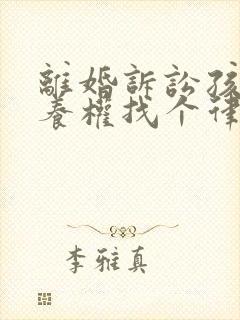 離婚訴訟孩
養權找个律
李雅真